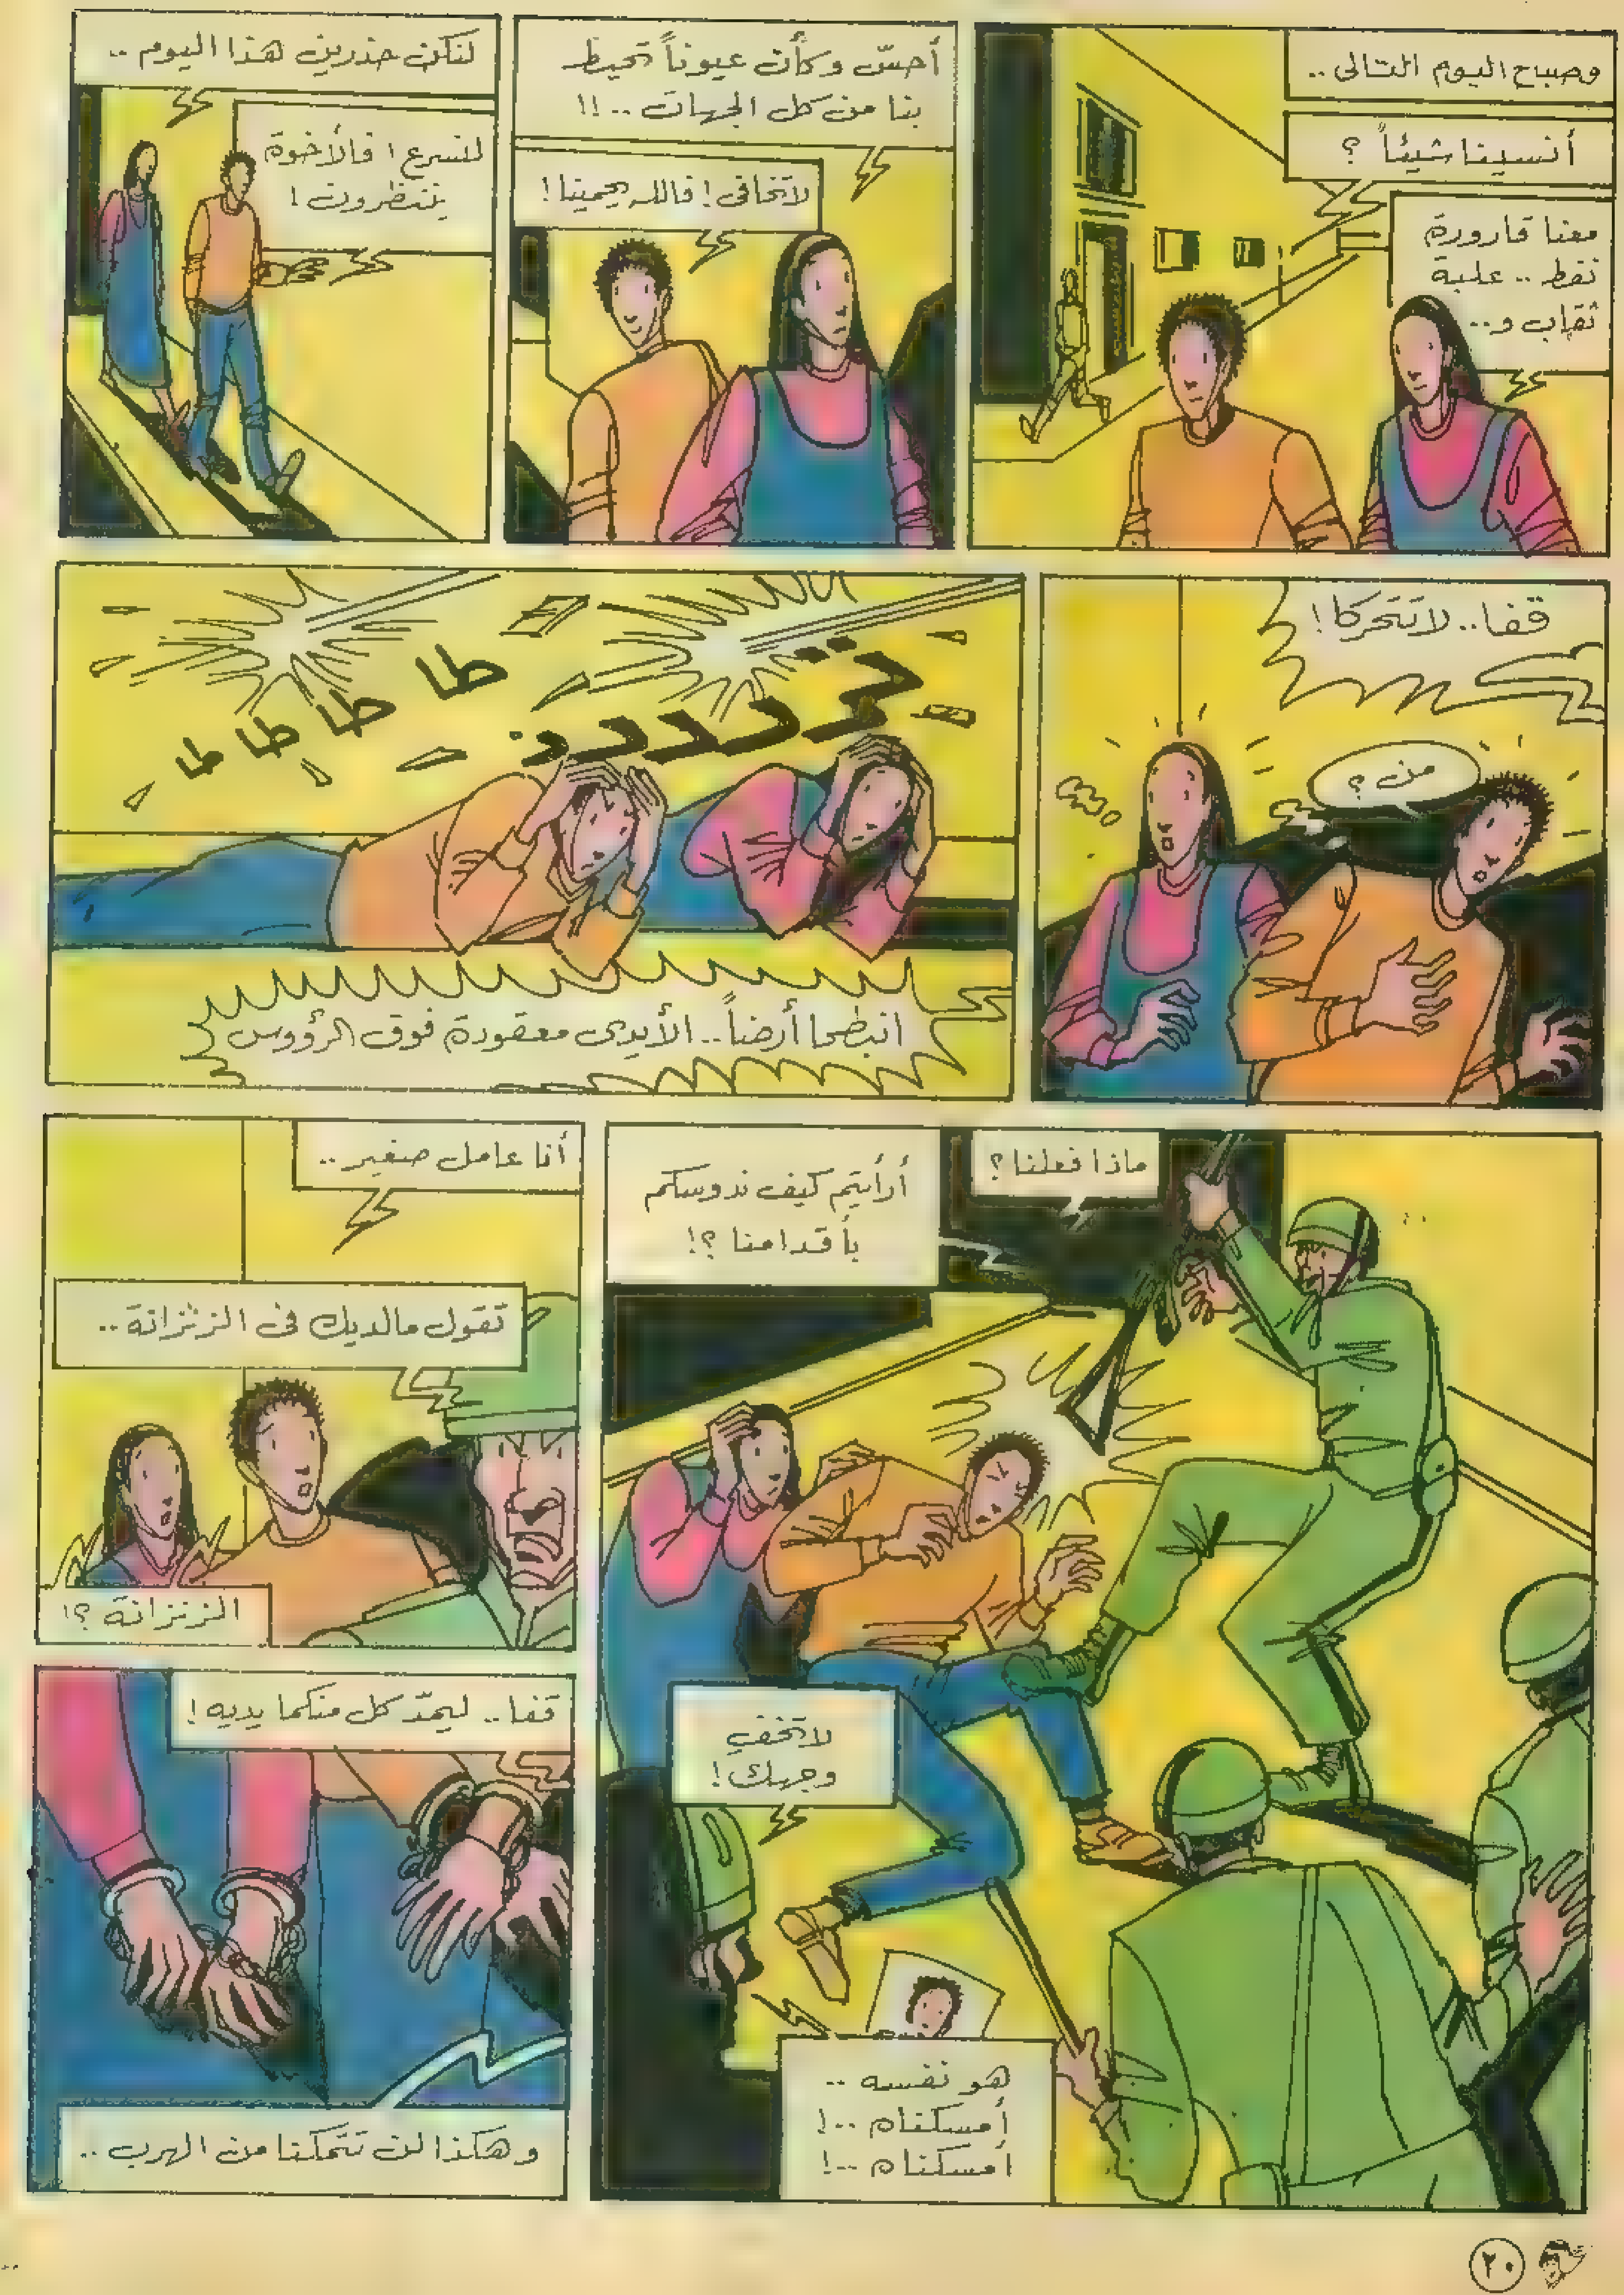 وصباح اليوم التالى ..
أنسينا شيئاً ؟
معنا قارورة
نفط .. علبة
ثقاب و ..
أحسّ وكأن عيوناً تحيط
بنا من كل الجهات ..!!
لا تخافى ! فالله يحمينا !
لنكن حذرين هذا اليوم ..
لنسرع ! فالأخوة
ينتظرون !
قفا .. لا تتحركا !
من ؟
تررررر..
طا طا طا طا
انبطحا أرضاً .. الأيدى معقودة فوق الرؤوس
ماذا فعلنا ؟
أرأيتم كيف ندوسكم
بأقدامنا ؟!
لا تخفِ
وجهك !
هو نفسه ..
أمسكناه ..!
أمسكناه ..!
أنا عامل صغير ..
تقول مالديك فى الزنزانة ..
الزنزانة ؟!
قفا .. ليمدّ كل منكما يديه !
وهكذا لن تتمكنا من الهرب ..
٢٠